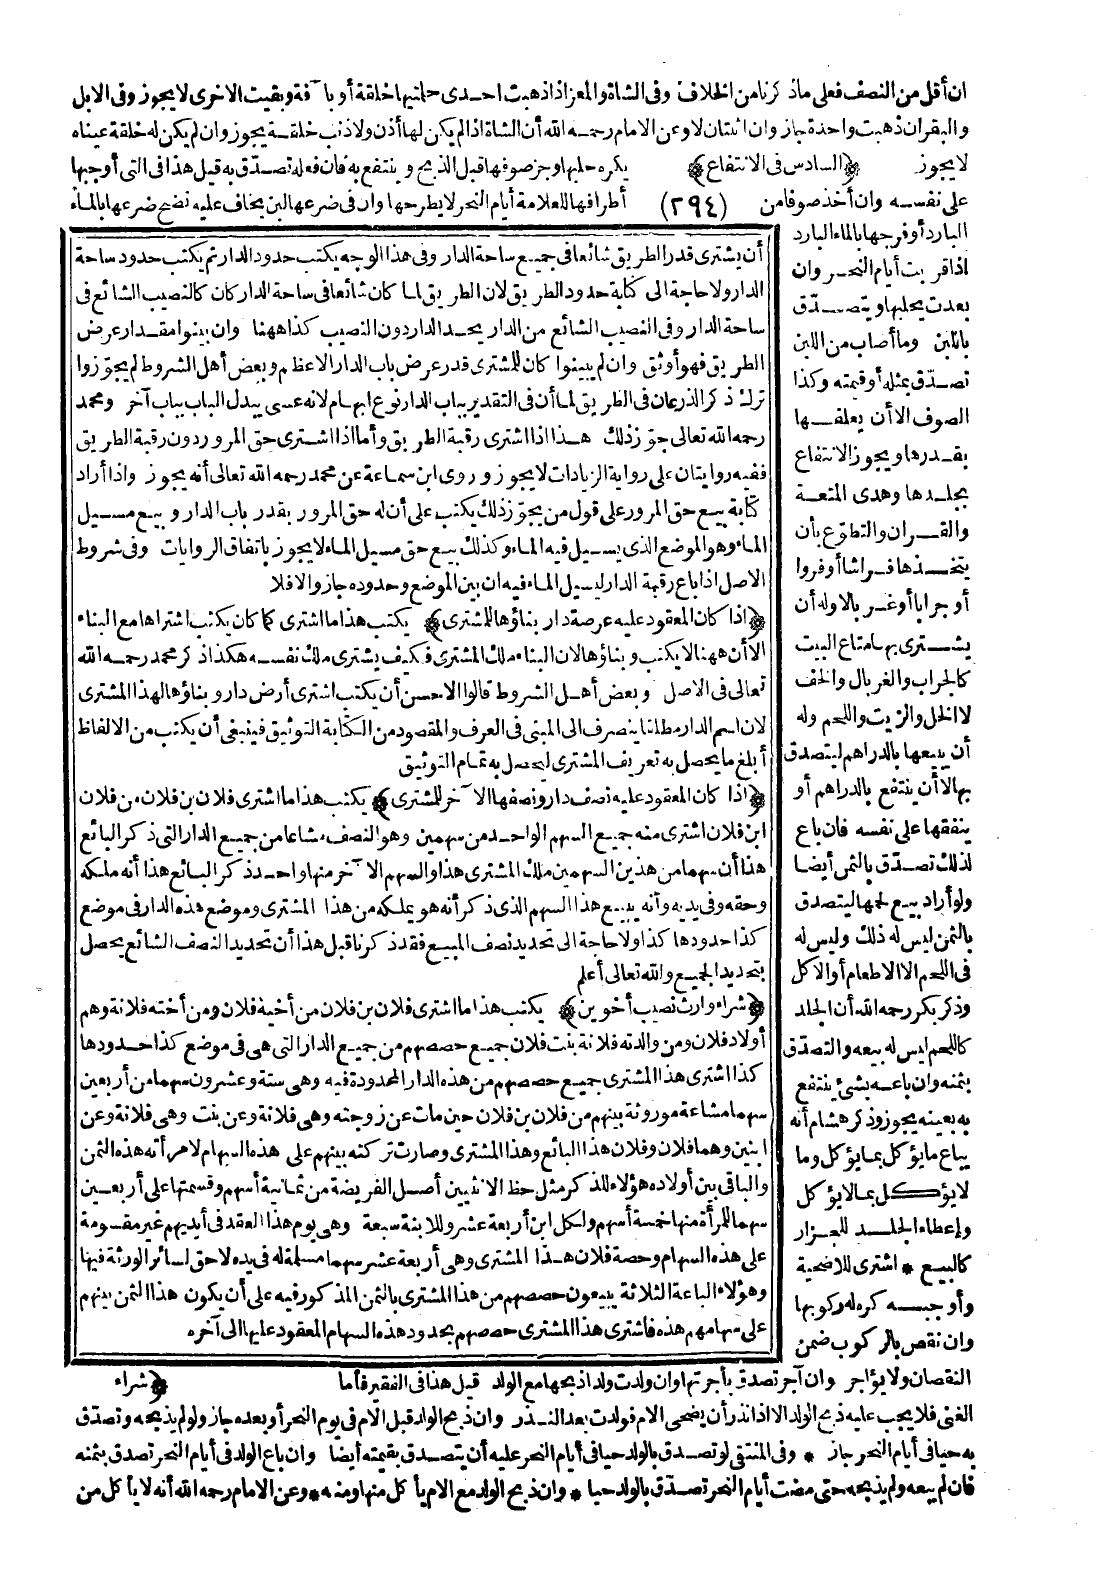 ان أقل من النصف فعلى ماذكرنا من الخلاف وفى الشاة والمعز اذا ذهبت احدى حلمتيها خلقة أو با ٓفة وبقيت الاخرى لا يجوز وفى الابل
والبقران ذهبت واحدة جاز وان اثنتان لا وعن الامام رحمه الله أن الشاة اذا لم يكن لها أذن ولا ذنب خلقة يجوز وان لم يكن له خلقة عيناه
لا يجوز ﴿السادس فى الانتفاع﴾ يكره حلبها وجز صوفها قبل الذبح وينتفع به فان فعله تصدق به قيل هذا فى التى أوجبها
على نفسه وان أخذ صوفا من (٢٩٤) أطرافها للعلامة أيام النحر لا يطرحها وان فى ضرعها لبن يخاف عليه نضح ضرعها بالماء
البارد أو فرجها بالماء البارد
اذا قربت أيام النحر وان
بعدت يحلبها ويتصدق
باللبن وما أصاب من اللبن
تصدق بمثله أو قيمته وكذا
الصوف الا أن يعلفها
بقدرها ويجوز الانتفاع
بجلدها وهدى المتعة
والقران والتطوع بأن
يتخذها فراشا أو فروا
أو جرابا أو غربالا وله أن
يشترى بها متاع البيت
كالجراب والغربال والخف
لا الخل والزيت واللحم وله
أن يبيعها بالدراهم ليتصدق
بها لا أن ينتفع بالدراهم أو
ينفقها على نفسه فان باع
لذلك تصدق بالثمن أيضا
ولو أراد بيع لحمها ليتصدق
بالثمن ليس له ذلك وليس له
فى اللحم الا الاطعام أو الاكل
وذكر بكر رحمه الله أن الجلد
كاللحم ليس له بيعه والتصدق
بثمنه وان باعه بشئ ينتفع
به بعينه يجوز وذكر هشام أنه
يباع مايؤكل بمايؤكل وما
لا يؤكل بمالايؤكل
واعطاء الجلد للجزار
كالبيع * اشترى للاضحية
وأوجبه كره له ركوبها
وان نقص بالركوب ضمن
النقصان ولا يؤاجر وان آجر تصدق بأجرتها وان ولدت ولدا ذبحها مع الولد قيل هذا فى الفقير فأما
الغنى فلا يجب عليه ذبح الولد الا اذا نذر أن يضحى الام فولدت بعد النذر وان ذبح الولد قبل الام فى يوم النحر أو بعده جاز ولو لم يذبحه وتصدق
به حيا فى أيام النحر جاز * وفى المنتقى لو تصدق بالولد حيا فى أيام النحر عليه أن يتصدق بقيمته أيضا وان باع الولد فى أيام النحر تصدق بثمنه
فان لم يبعه ولم يذبحه حتى مضت أيام النحر تصدق بالولد حيا * وان ذبح الولد مع الام يأكل منها ومنه * وعن الامام رحمه الله أنه لا يأكل من
أن يشترى قدر الطريق شائعا فى جميع ساحة الدار وفى هذا الوجه يكتب حدود الدار ثم يكتب حدود ساحة
الدار ولا حاجة الى كتابة حدود الطريق لان الطريق لما كان شائعا فى ساحة الدار كان كالنصيب الشائع فى
ساحة الدار وفى النصيب الشائع من الدار يحد الدار دون النصيب كذا ههنا وان بينوا مقدار عرض
الطريق فهو أوثق وان لم يبينوا كان للمشترى قدر عرض باب الدار الاعظم وبعض أهل الشروط لم يجوزوا
ترك ذكر الذرعان فى الطريق لما أن فى التقدير بباب الدار نوع ابهام لانه عسى يبدل الباب بباب آخر ومحمد
رحمه الله تعالى جوز ذلك هذا اذا اشترى رقبة الطريق وأما اذا اشترى حق المرور دون رقبة الطريق
ففيه روايتان على رواية الزيادات لا يجوز وروى ابن سماعة عن محمد رحمه الله تعالى أنه يجوز واذا أراد
كتابة بيع حق المرور على قول من يجوز ذلك يكتب على أن له حق المرور بقدر باب الدار وبيع مسيل
الماء وهو الموضع الذى يسيل فيه الماء وكذلك بيع حق مسيل الماء لا يجوز باتفاق الروايات وفى شروط
الاصل اذا باع رقبة الدار ليسيل الماء فيه ان بين الموضع وحدوده جاز والا فلا
﴿اذا كان المعقود عليه عرصة دار بناؤها للمشترى﴾ يكتب هذا ما اشترى كما كان يكتب اشتراها مع البناء
الا أن ههنا لا يكتب وبناؤها لان البناء ملك المشترى فكيف يشترى ملك نفسه هكذا ذكر محمد رحمه الله
تعالى فى الاصل وبعض أهل الشروط قالوا الاحسن أن يكتب اشترى أرض دار وبناؤها لهذا المشترى
لان اسم الدار مطلقا ينصرف الى المبنى فى العرف والمقصود من الكتابة التوثيق فينبغى أن يكتب من الالفاظ
أبلغ ما يحصل به تعريف المشترى ليحصل به تمام التوثيق
﴿اذا كان المعقود عليه نصف دار ونصفها الا ٓخر للمشترى﴾ يكتب هذا ما اشترى فلان بن فلان من فلان
ابن فلان اشترى منه جميع السهم الواحد من سهمين وهو النصف مشاعا من جميع الدار التى ذكر البائع
هذا أن سهما من هذين السهمين ملك المشترى هذا والسهم الا ٓخر منها واحد ذكر البائع هذا أنه ملكه
وحقه وفى يديه وأنه يبيع هذا السهم الذى ذكر أنه هو يملكه من هذا المشترى وموضع هذه الدار فى موضع
كذا حدودها كذا ولا حاجة الى تحديد نصف المبيع فقد ذكرنا قبل هذا أن تحديد النصف الشائع يحصل
بتحديد الجميع والله تعالى أعلم
﴿شراء وارث نصيب أخوين﴾ يكتب هذا ما اشترى فلان بن فلان من أخيه فلان ومن أخته فلانة وهم
أولاد فلان ومن والدته فلانة بنت فلان جميع حصصهم من جميع الدار التى هى فى موضع كذا حدودها
كذا اشترى هذا المشترى جميع حصصهم من هذه الدار المحدودة فيه وهى ستة وعشرون سهما من أربعين
سهما مشاعة موروثة بينهم من فلان بن فلان حين مات عن زوجته وهى فلانة وعن بنت وهى فلانة وعن
ابنين وهما فلان وفلان هذا البائع وهذا المشترى وصارت تركته بينهم على هذه السهام لامرأته هذه الثمن
والباقى بين أولاده هؤلاء للذكر مثل حظ الانثيين أصل الفريضة من ثمانية أسهم وقسمتها على أربعين
سهما للمرأة منها خمسة أسهم ولكل ابن أربعة عشر وللابنة سبعة وهى يوم هذا العقد فى أيديهم غير مقسومة
على هذه السهام وحصة فلان هذا المشترى وهى أربعة عشر سهما مسلمة له فى يده لا حق لسائر الورثة فيها
وهؤلاء الباعة الثلاثة يبيعون حصصهم من هذا المشترى بالثمن المذكور فيه على أن يكون هذا الثمن بينهم
على سهامهم هذه فاشترى هذا المشترى حصصهم بحدود هذه السهام المعقود عليها الى آخره
﴿شراء